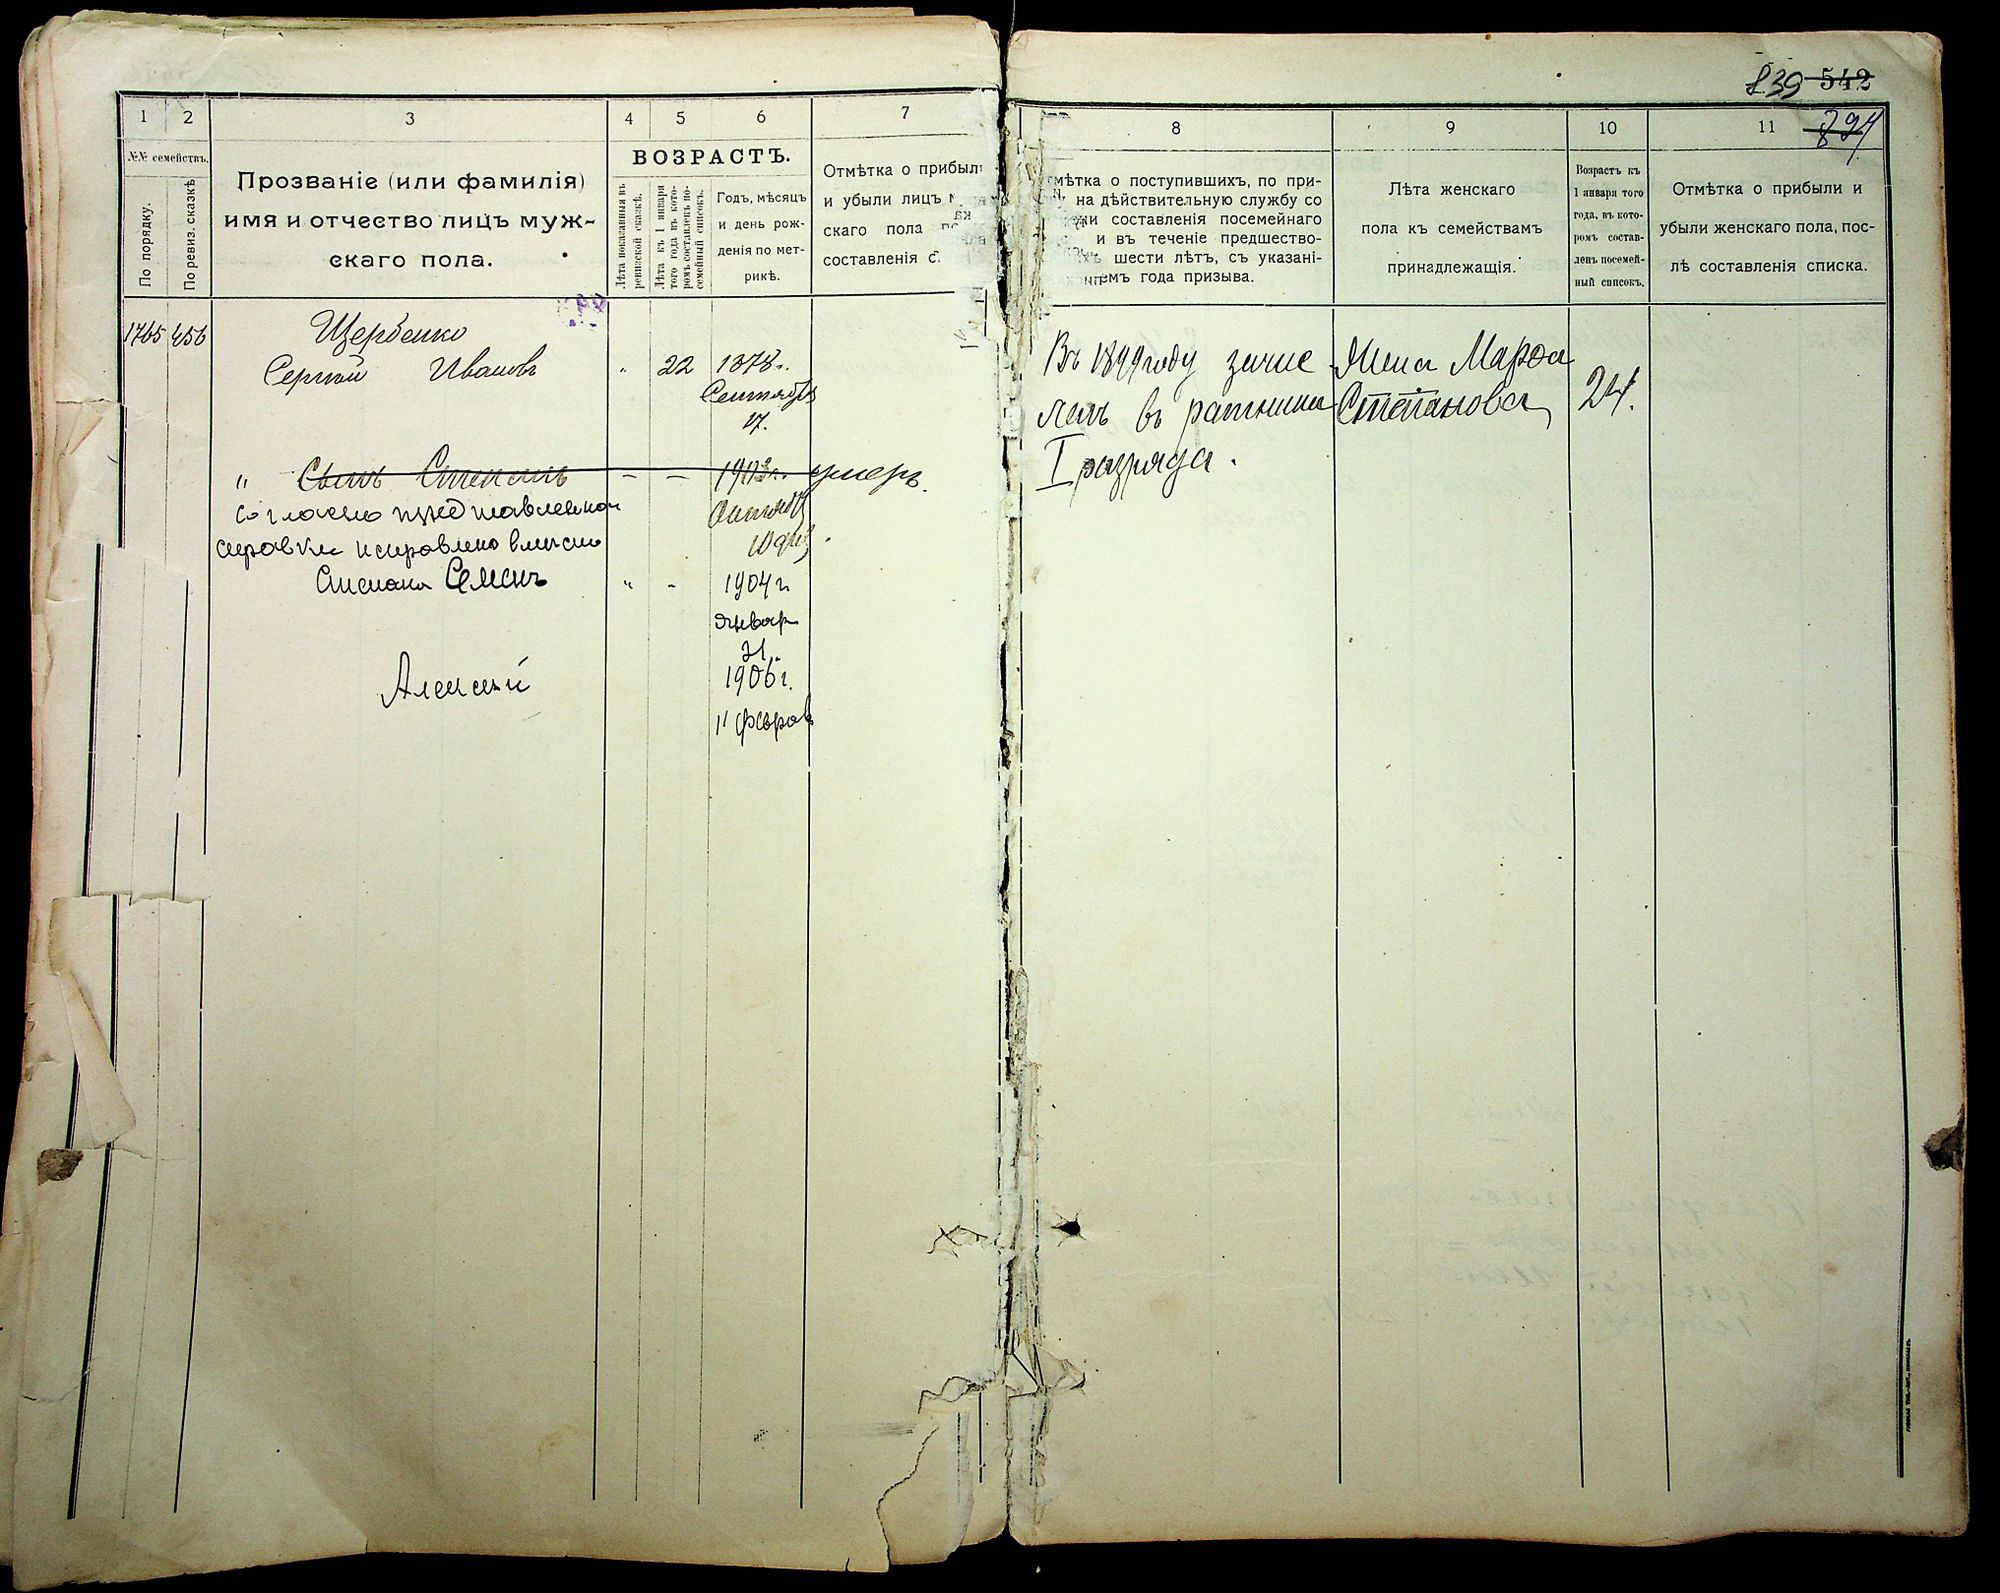 839 542
894
1
2
3
4
5
6
7
№№ семействъ.
По порядку.
По ревиз. сказкѣ
Прозваніе (или фамилія)
имя и отчество лицъ муж-
скаго пола.
ВОЗРАСТЪ.
Лѣта показанныя въ
ревизской сказкѣ.
Лѣта къ 1 января
того года въ кото-
ромъ составленъ по-
семейный списокъ.
Годъ, мѣсяцъ
и день рож-
денія по мет-
рикѣ.
Отмѣтка о прибыли
и убыли лицъ м
скаго пола по
составленія с.
8
9
10
11
мѣтка о поступившихъ, по при-
на дѣйствительную службу со
составленія посемейнаго
и въ теченіе предшество-
шести лѣтъ, съ указані-
емъ года призыва.
Лѣта женскаго
пола къ семействамъ
принадлежащія.
Возрастъ къ
1 января того
года, въ кото-
ромъ состав-
ленъ посемей-
ный списокъ.
Отмѣтка о прибыли и
убыли женскаго пола, пос-
лѣ составленія списка.
1765 456 Щербенко
Сергѣй Ивановъ " 22 1878 г.
Сентября
17.
" Сынъ Степанъ - - 1903 г. умеръ.
Согласно представленной
справки исправлено вмѣсто
Степана Семенъ " - 1904 г
Январ
31.
Алексѣй 1906 г.
11 Феврал
Въ 1899 году зачис
ленъ въ ратники
I разряда.
Жена Марфа
Степановa 24.